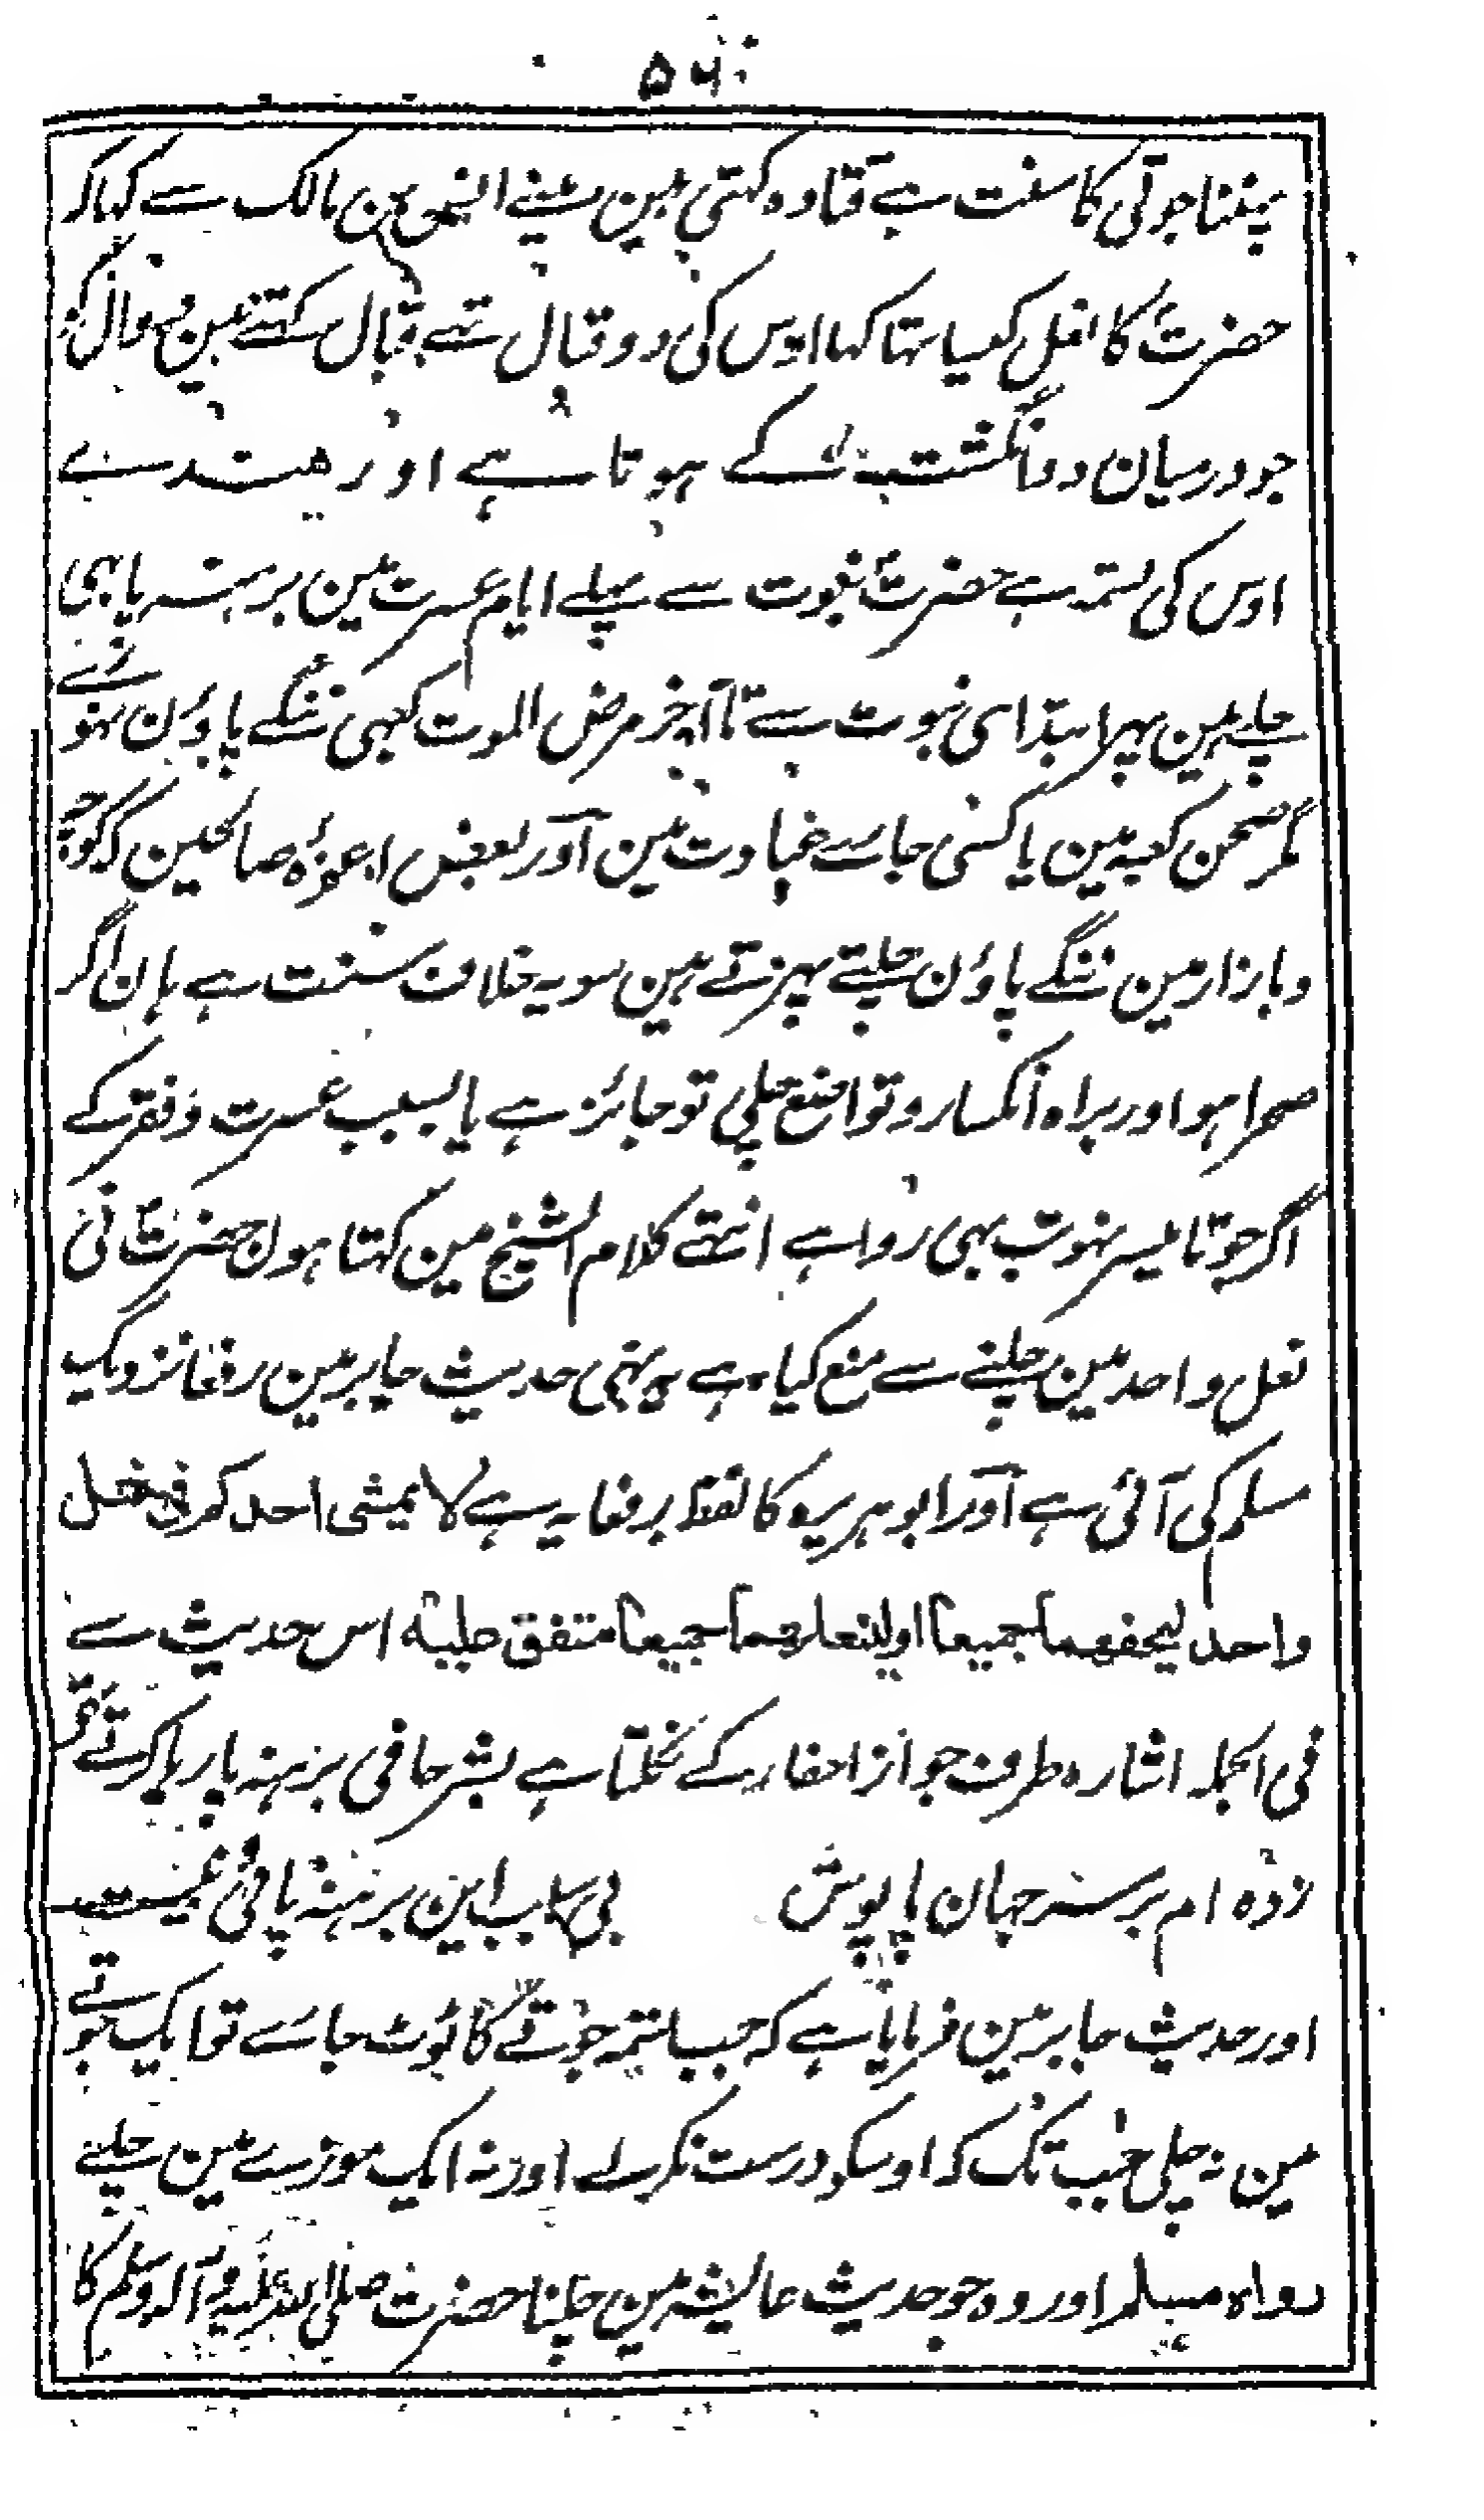 ۵۶
پہننا جوتی کا سنت ہے قتادہ کہتی ہین مینے انس بن مالک سے کہا کہ
حضرت کا نعل کیسا تہا کہا اوس کی دو قبال تہے قبال کہتے ہین دوال کو
جو درمیان دو انگشت کے ہوتا ہے اور ہند سے
اوس کی تسمہ ہے حضرت نبوت سے پہلے ایام عسرت مین برہنہ پا بہی
چلے ہین پہر ابتدای نبوت سے تا آخر مرض الموت کبہی ننگے پاؤن نہو ئے
مگر صحن کعبہ مین یا کسی جاے عبادت مین آور بعض اعزہ صالحین کہ کوچہ
و بازار مین ننگے پاؤن چلتے پہرتے ہین سو یہ خلاف سنت ہے ہان اگر
صحرا ہو اور براہ انکسار و تواضع چلی تو جائز ہے یا بسبب عسرت و فقر کے
اگر جوتا میسر نہو تب بہی روا ہے انتہے کلام الشیخ مین کہتا ہون حضرت نی
نعل واحد مین چلنے سے منع کیا ہے یہ نہی حدیث جابر مین رفعا نزدیک
مسلم کی آئی ہے آور ابو ہریرہ کا لفظ رفعا یہ ہے لا یمشی احد کم فی نعل
واحد لیحفہما جمیعا او لینعلہما جمیعا متفق علیہ اس حدیث سے
فی الجملہ اشارہ طرف جواز احفار کے نکلتا ہے بشر حافی برہنہ پا رہا کرتے تھے
زدہ ام بر سر جہان پاپوش بی سبب این برہنہ پائی نیست
اور حدیث جابر مین فرمایا ہے کہ جب تسمہ جوتے کا ٹوٹ جاے تو ایک جوتے
مین نہ چلی جب تک کہ اوسکو درست نکرلے اور نہ ایک موزے مین چلے
رواہ مسلم اور وہ جو حدیث عایشہ مین چلنا حضرت صلی اللہ علیہ و آلہ وسلم کا